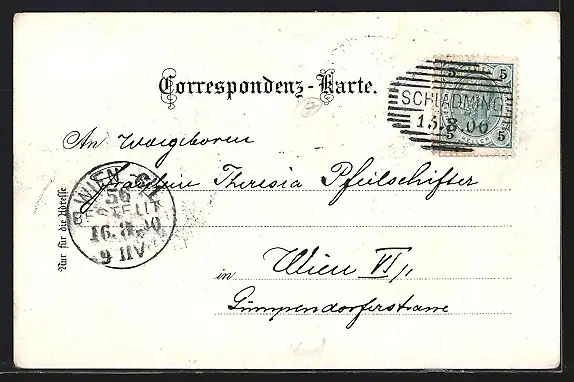 Correspondenz-Karte.
5 5
SCHLADMING
15.8.00
5 5
An Wolgeboren
Fräulein Theresia Pfeilschifter
WIEN
56
BESTELLT
16.8.00
9 V
Nur für die Adresse
in Wien VI/1
Gumpendorferstrasse